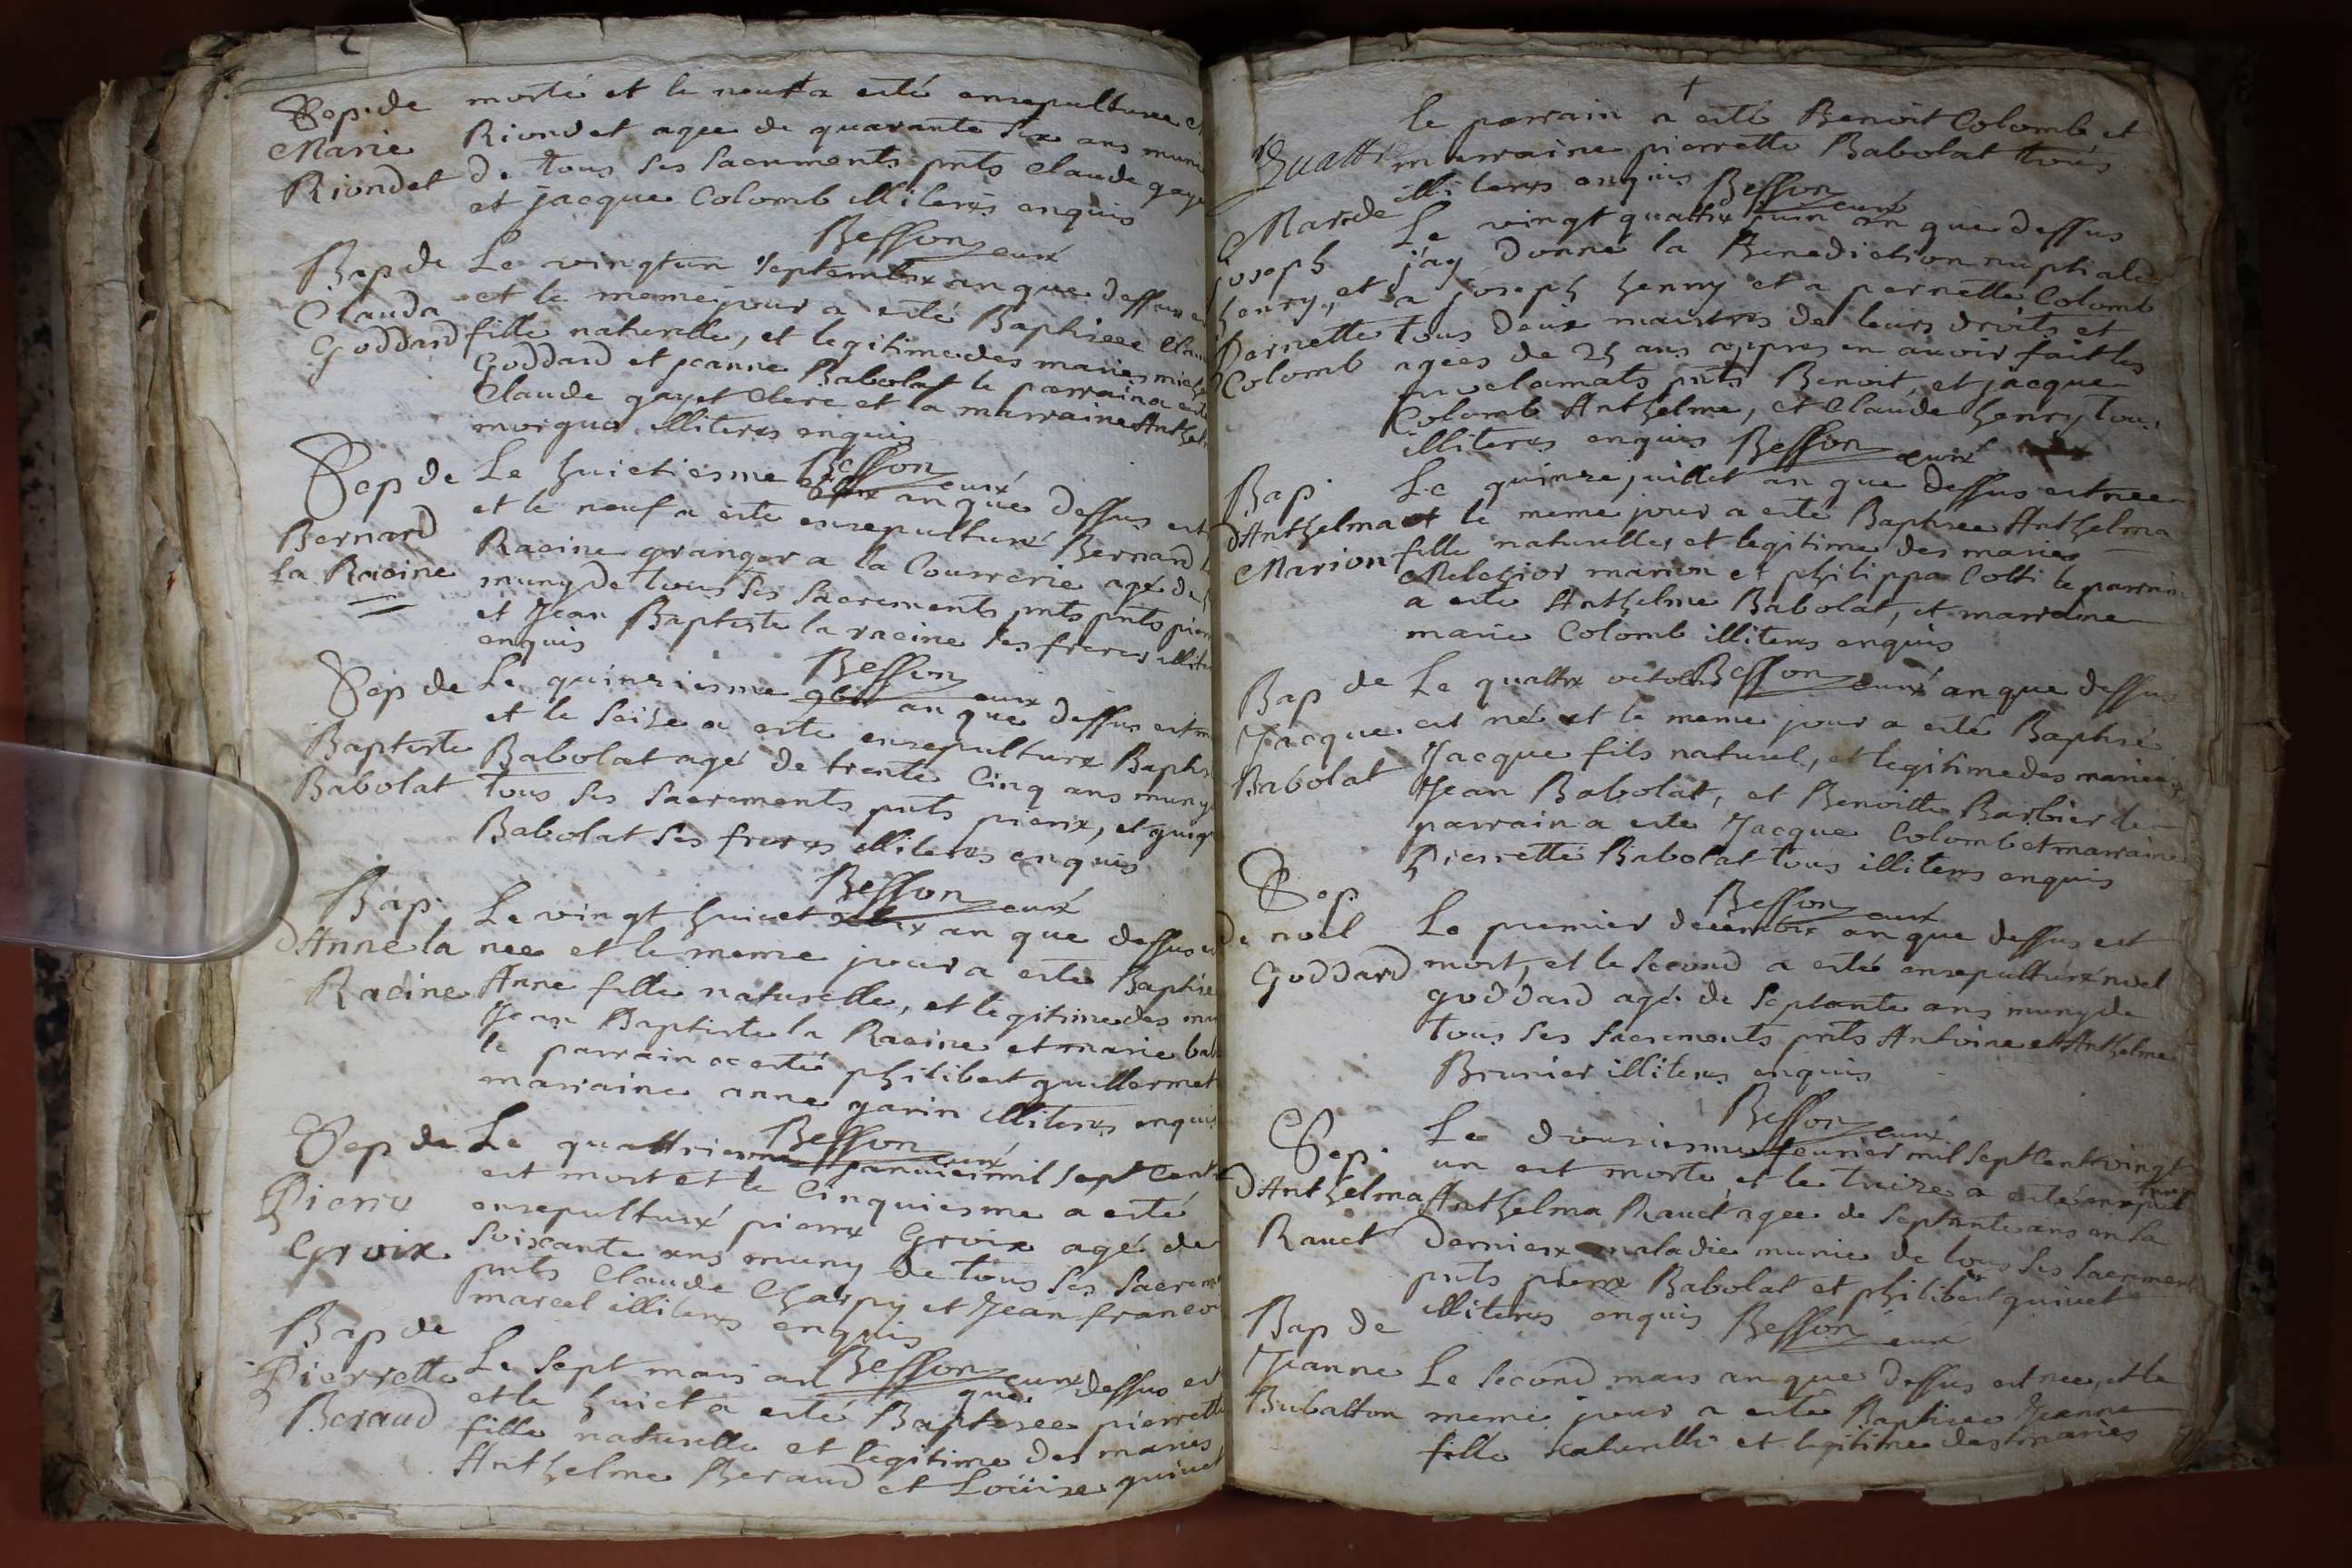 2
Sep. de
Marie
Riondet
morte et le neuf a esté ensepulturee
Riondet agee de quarante six ans munie
de tous ses sacrements pnts Claude gaye
et jacque Colomb illiteres enquis
Besson curé
Bap de
Clauda
Goddard
Le vingtun septembre an que dessus
et le meme jour a esté Baptisee
fille naturelle, et legitime des maries
Goddard et jeanne Babolat le parrain a esté
Claude gayet Clerc et la marraine
illiteres enquis
Besson curé
Sep de
Bernard
La Racine
Le huictiesme an que dessus est
et le neuf a esté ensepulturé Bernard
Racine granger a la Courrerie agé de
muny de tous ses sacrements pnts pnts
et Jean Baptiste la racine ses freres
enquis
Besson curé
Sep de
Baptiste
Babolat
Le quinziesme an que dessus est
et le seize a esté ensepulturé
Babolat agé de trente Cinq ans muny
tous ses sacrements pnts pierre, et
Babolat ses freres illiteres enquis
Besson curé
Bap.
d'Anne la
Racine
Le vingt huict an que dessus
nee et le meme jour a esté
Anne fille naturelle, et legitime des
Jean Baptiste la Racine et marie
le parrain a esté philibert guillermet
marraine anne garin illiteres enquis
Besson curé
Sep de
Pierre
Groix
Le quattriesme janvier mil sept Cent
est mort et le Cinquiesme a esté
ensepulturé pierre Groix agé de
soixante ans muny de tous ses
pnts Claude Charpy et Jean
marcel illiteres enquis
Besson curé
Bap de
Pierrette
Beraud
Le sept mars an que dessus est
et le huict a esté Baptisee pierrette
fille naturelle et legitime des maries
Anthelme Beraud et Loüise quinet
le parrain a esté Benoit Colomb et
marraine pierrette Babolat tous
illiteres enquis Besson curé
Mar. de
joseph
henry, et
Pernette
Colomb
Le vingt quattre juin an que dessus
j'ay Donné la Benediction nuptiale
a joseph henry et a pernette Colomb
tous Deux maistres de leurs droits et
agees de 25 ans appres en avoir fait les
proclamats pnts Benoit, et jacque
Colomb Anthelme, et Claude henry, tous
illiteres enquis Besson curé
Bap.
d'Anthelma
Marion
Le quinze juillet an que dessus est nee
et le meme jour a esté Baptisee Anthelma
fille naturelle, et legitime des maries
Melchior marion et philippa Cotti le parrain
a esté Anthelme Babolat, et marraine
marie Colomb illiteres enquis
Besson curé
Bap de
Jacque
Babolat
Le quattre octobre an que dessus
est né et le meme jour a esté Baptisé
Jacque fils naturel, et legitime des maries
Jean Babolat, et Benoitte Barbier le
parrain a esté Jacque Colomb et marraine
Pierrette Babolat tous illiteres enquis
Besson curé
Sep
de noel
Goddard
Le premier decembre an que dessus est
mort, et le second a esté ensepulturé noel
goddard agé de septante ans muny de
tous ses sacrements pnts Antoine et Anthelme
Brunier illiteres enquis
Besson curé
Sep.
d'Anthelma
Ravet
Le douziesme fevrier mil sept Cent vingt
un est morte, et le treize a esté
Anthelma Ravet agee de septante ans en sa
derniere maladie munie de tous ses sacrements
pnts pierre Babolat et philibert quinet
illiteres enquis Besson curé
Bap de
Jeanne
Bubatton
Le second mars an que dessus est nee, et le
meme jour a esté Baptisee Jeanne
fille naturelle et legitime des maries